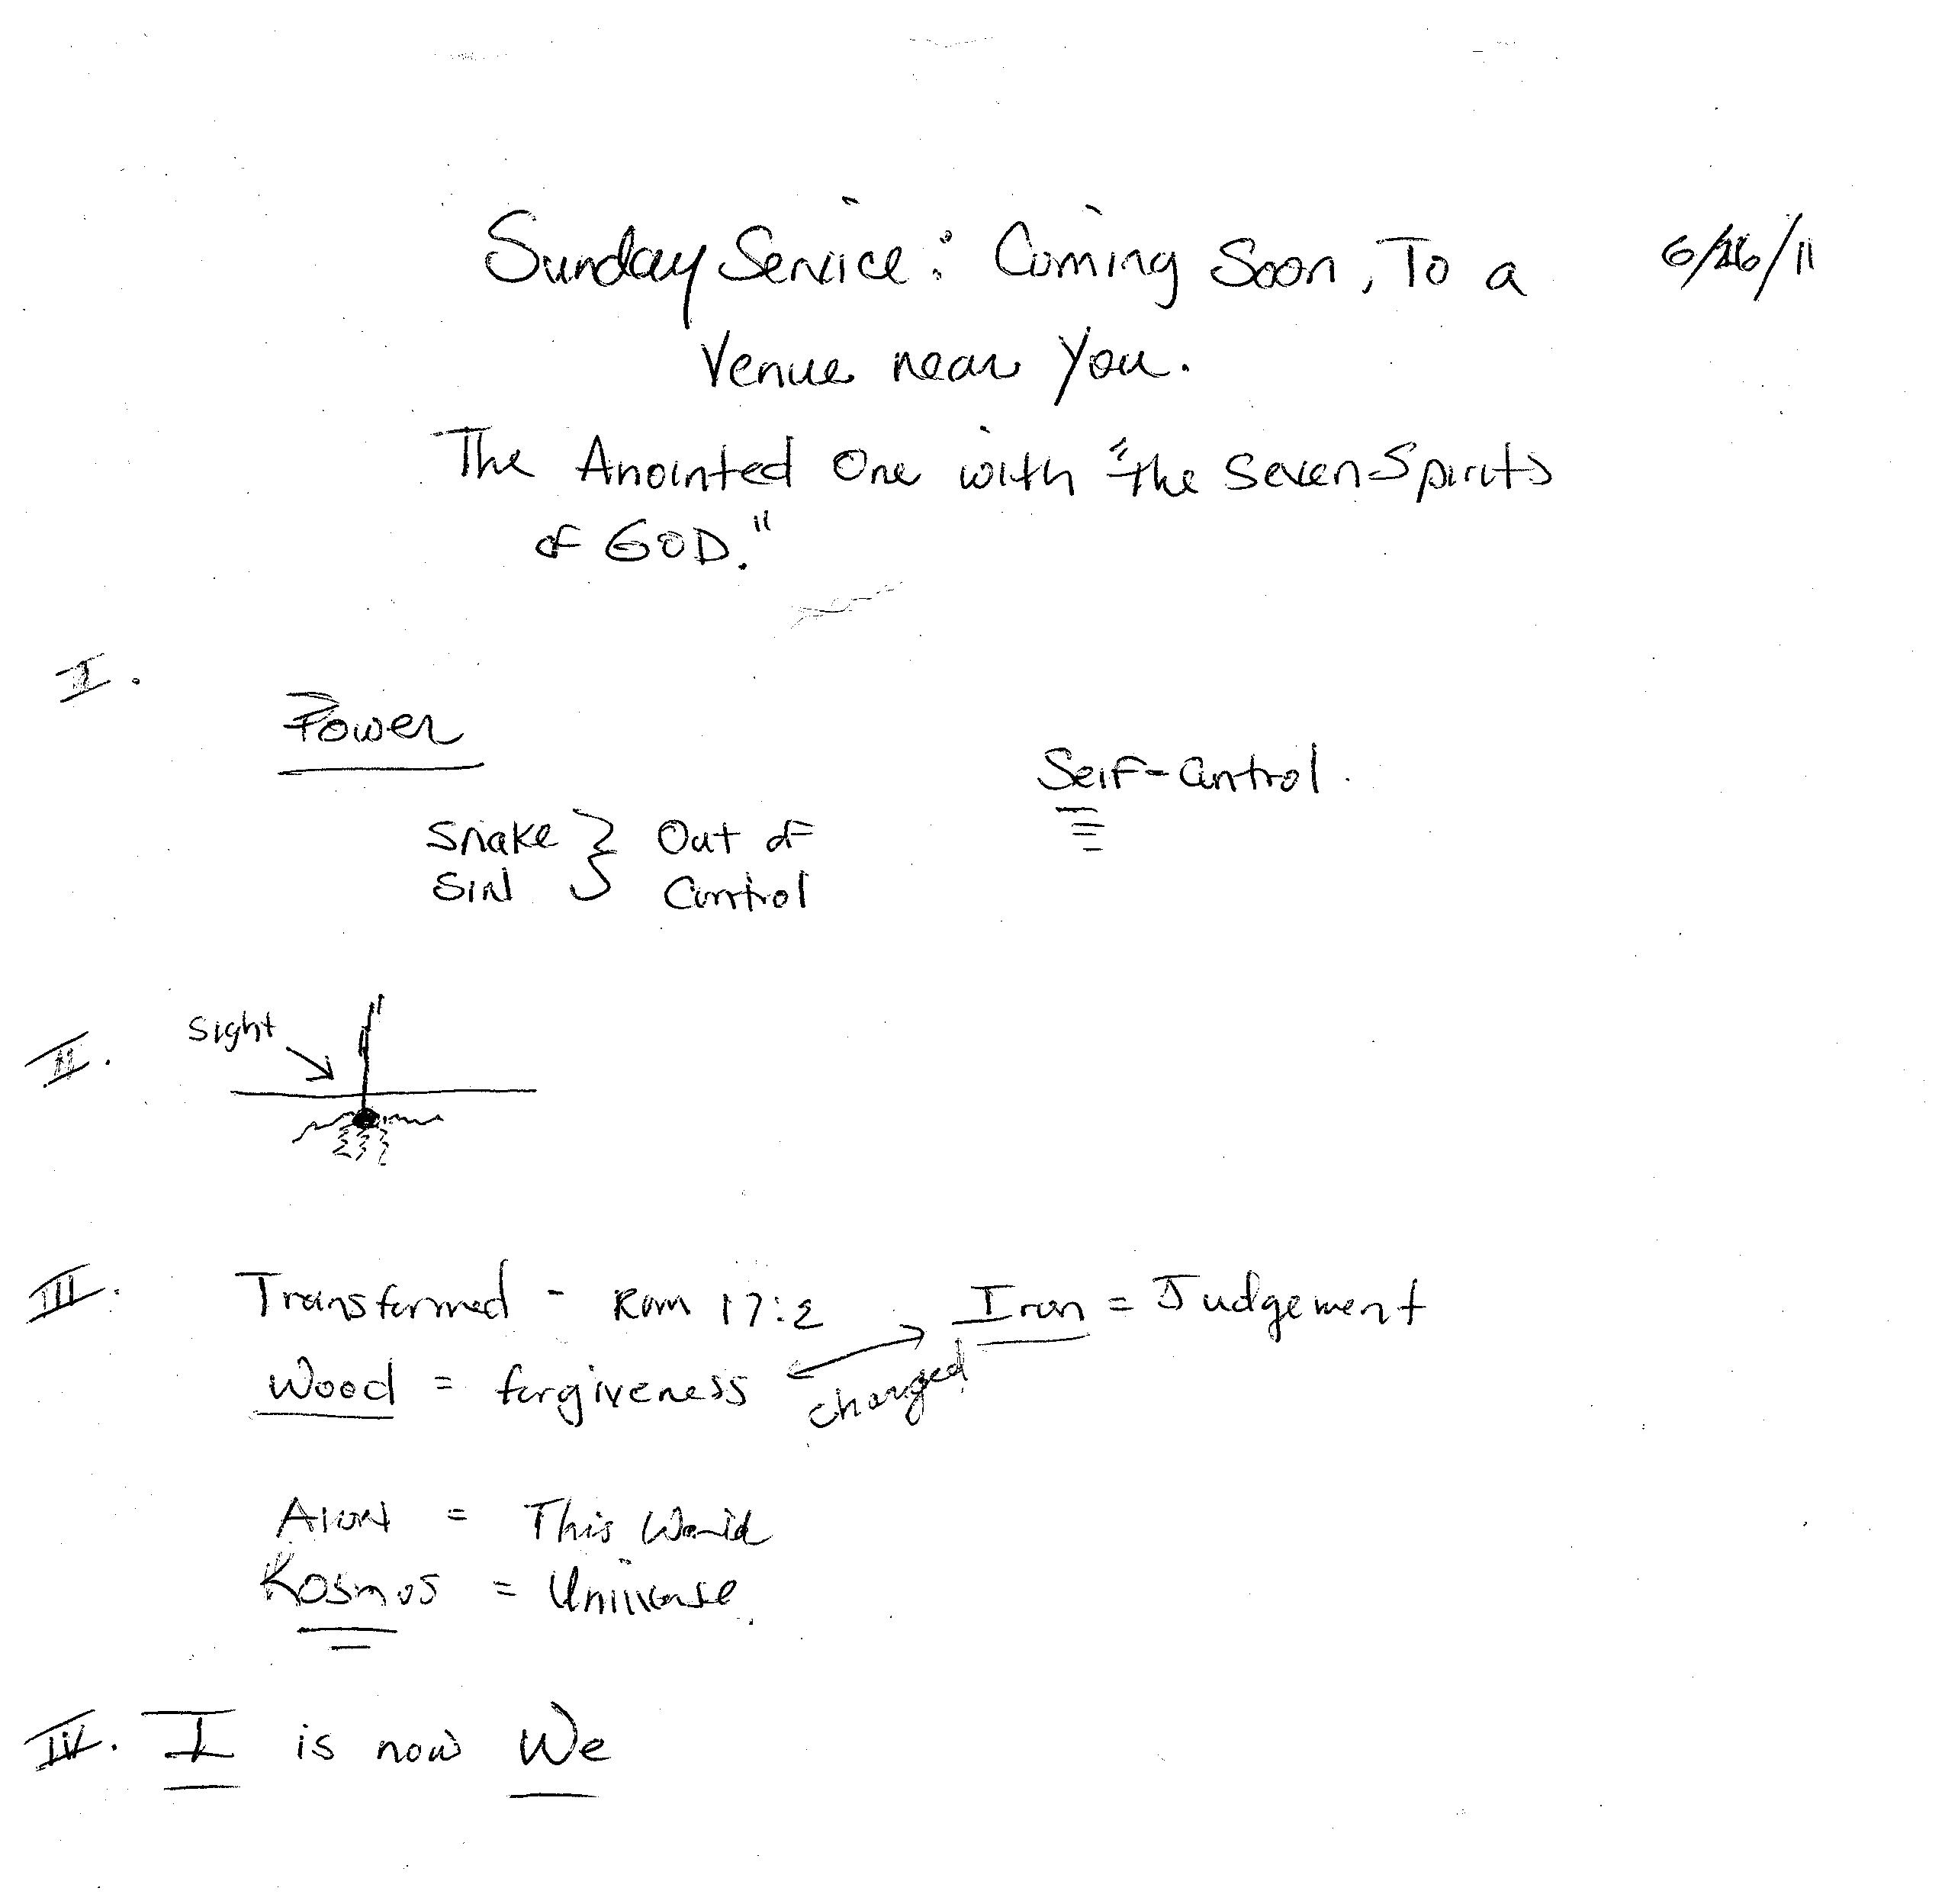 Sunday Service: Coming Soon, To a 6/26/11
Venue near You.
The Anointed One with "the Seven Spirits
of GOD."
I.
Power
Self-Control.
Snake } Out of
SIN Control
Sight
II.
III. Transformed - Rom 17:2 Iron = Judgement
Wood = forgiveness changed
AION = This World
Kosmos = Universe.
IV. I is now We